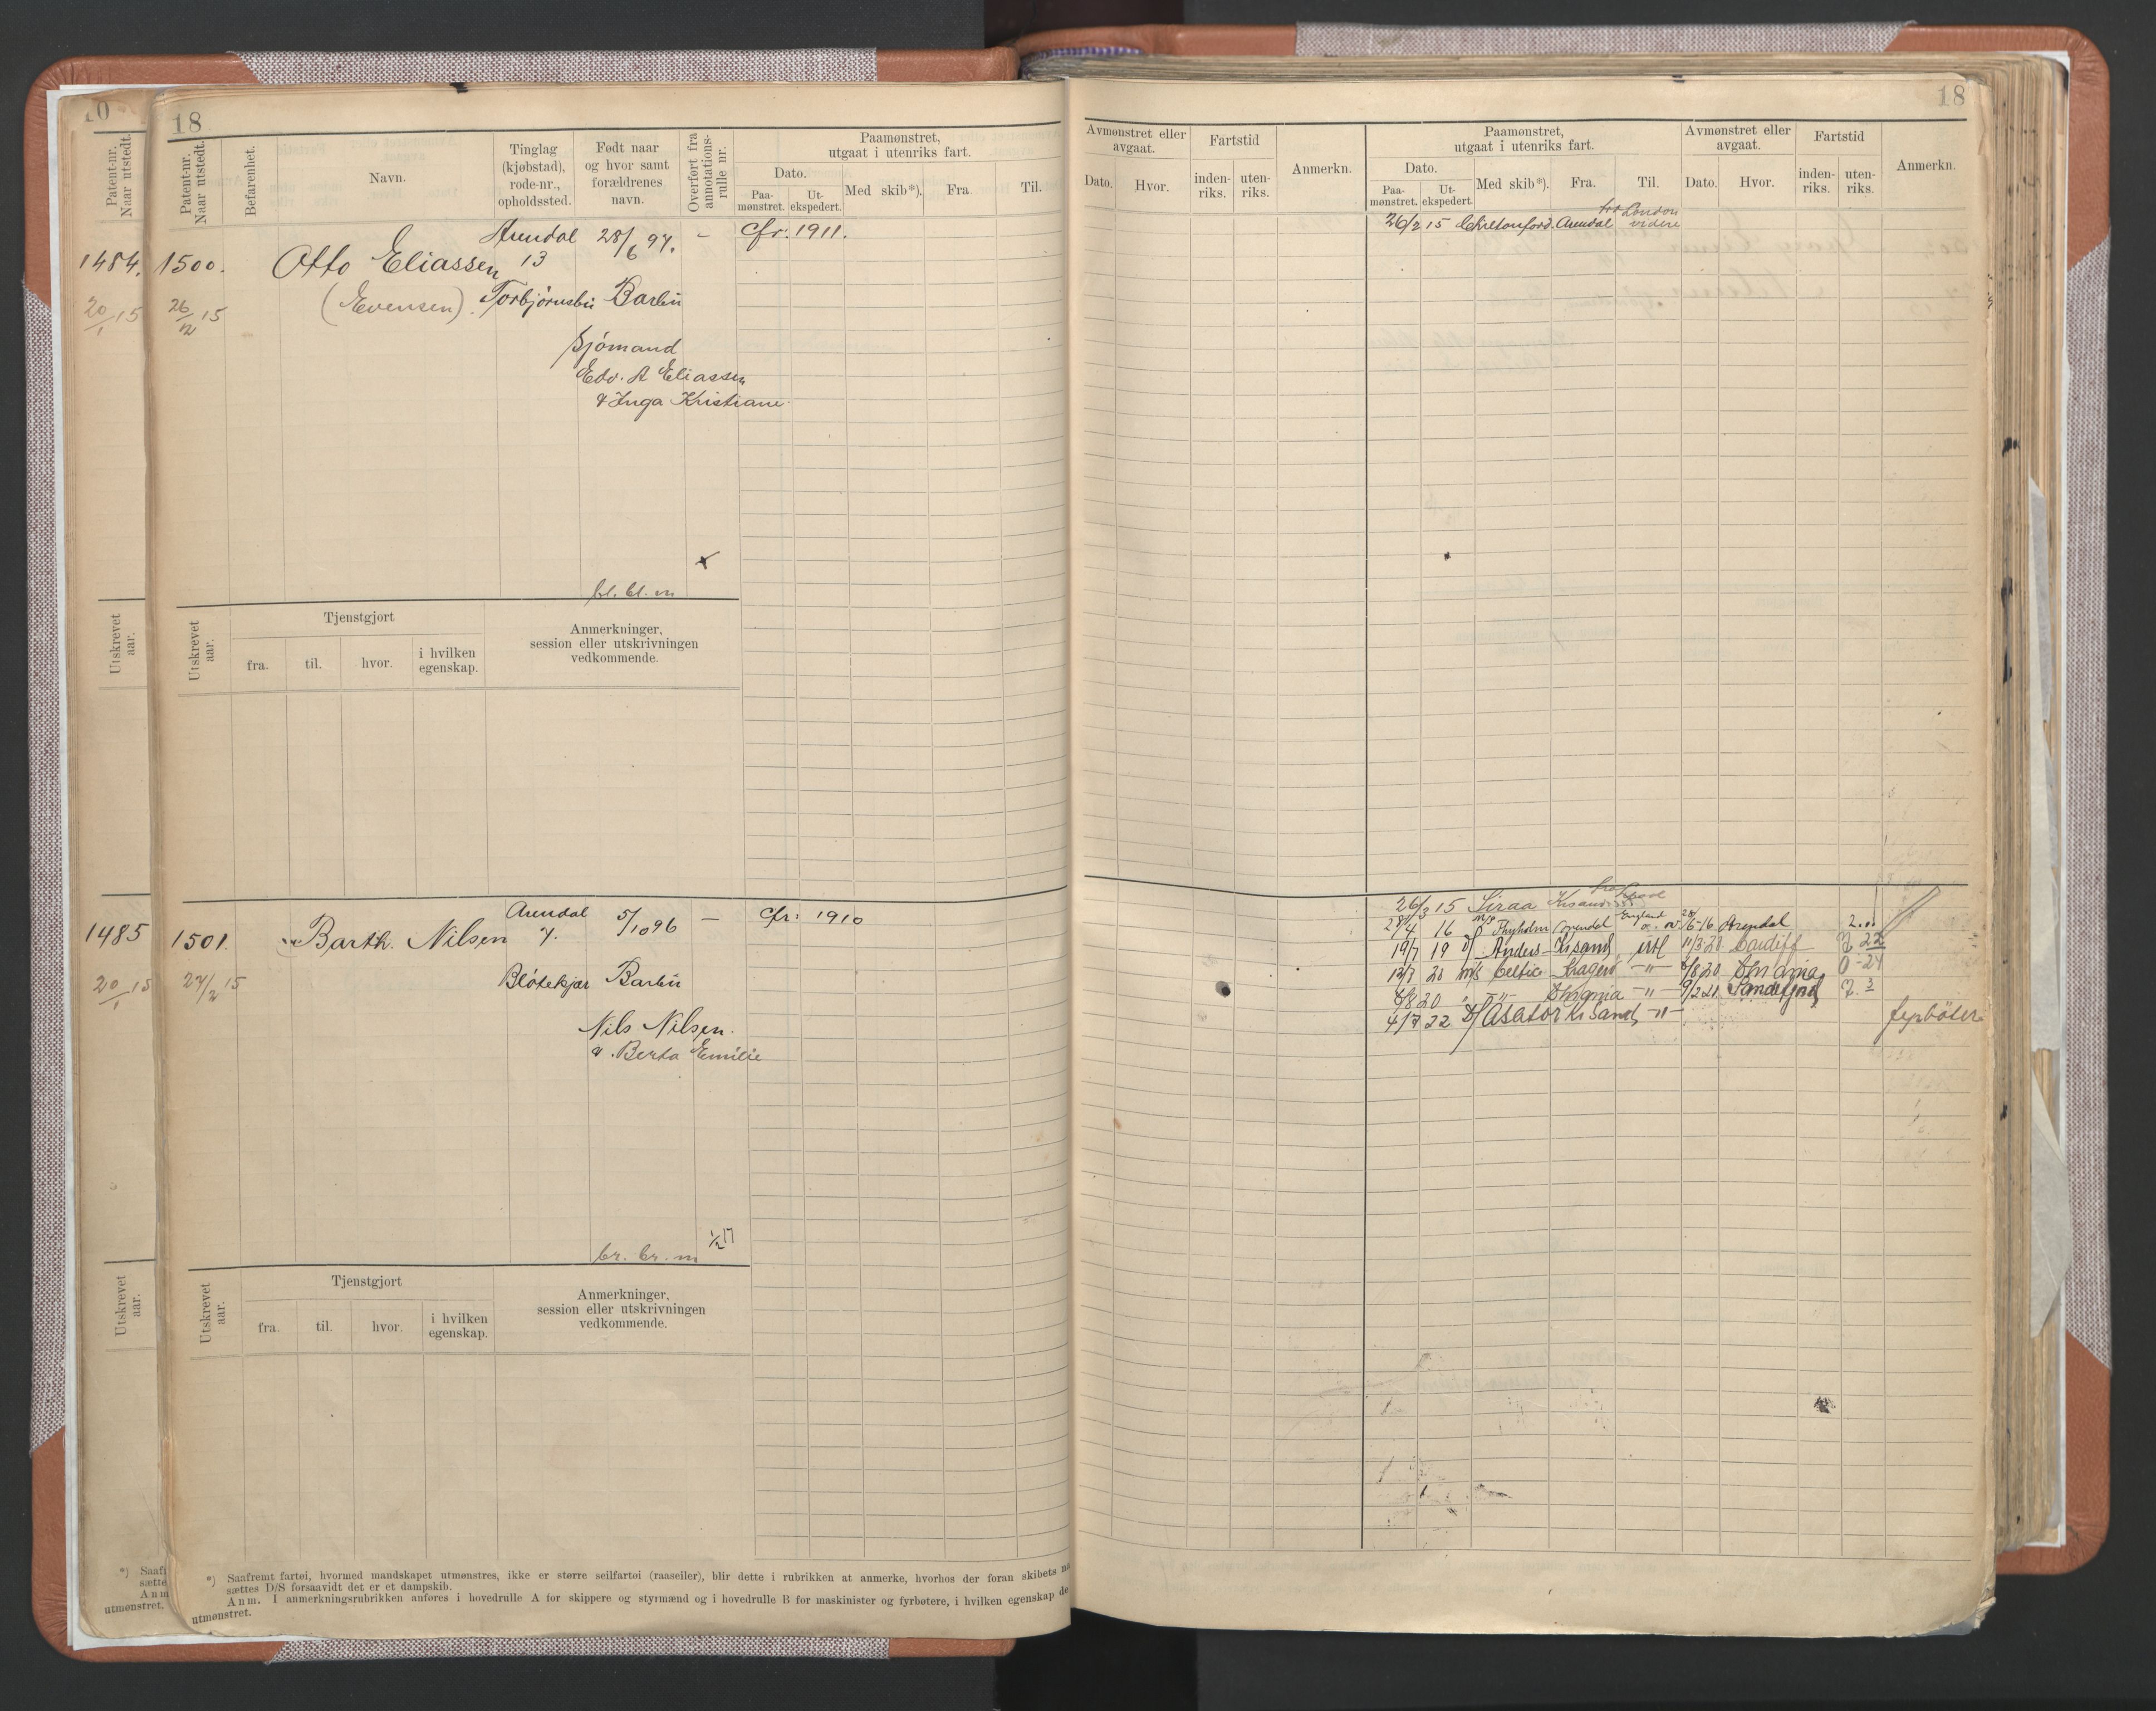 10
Patent-nr.
Naar utstedt.
1484.
20/1 15
Utskrevet
aar.
1485
20/1 15
Utskrevet
aar.
*) Saafr
sætte
Anm
utmønstret.
18
Patent-nr.
Naar utstedt.
Befarenhet.
Navn.
Tinglag
(kjøbstad),
rode-nr.,
opholdssted.
Født naar
og hvor samt
forældrenes
navn.
Overført fra
annotations-
rulle nr.
Paamønstret,
utgaat i utenriks fart.
Dato.
Paa-
mønstret.
Ut-
ekspedert.
Med skib*).
Fra.
Til.
1500.
26/2 15
Otto Eliassen
(Evensen).
Arendal
13
Torbjørnsbu
28/6 97.
Barbu
Sjømand
Edv. A Eliassen
& Inga Kristiane
bl. bl. m
–
x
Cfr: 1911.
Utskrevet
aar.
Tjenstgjort
fra.
til.
hvor.
i hvilken
egenskap.
Anmerkninger,
session eller utskrivningen
vedkommende.
1501.
27/2 15
Barth. Nilsen
Arendal
7.
Bløtekjær
5/10 96
Barbu
Nils Nilsen.
& Berta Emilie
br. br. m
–
1/2 17
Cfr: 1910
Utskrevet
aar.
Tjenstgjort
fra.
til.
hvor.
i hvilken
egenskap.
Anmerkninger,
session eller utskrivningen
vedkommende.
*) Saafremt fartøi, hvormed mandskapet utmønstres, ikke er større seilfartøi (raaseiler), blir dette i rubrikken at anmerke, hvorhos der foran skibets na
sættes D/S forsaavidt det er et dampskib.
Anm. I anmerkningsrubrikken anføres i hovedrulle A for skippere og styrmænd og i hovedrulle B for maskinister og fyrbøtere, i hvilken egenskap de
utmønstret.
18
Avmønstret eller
avgaat.
Dato.
Hvor.
Fartstid
inden-
riks.
uten-
riks.
Anmerkn.
Paamønstret,
utgaat i utenriks fart.
Dato.
Paa-
mønstret.
Ut-
ekspedert.
Med skib*).
Fra.
Til.
Avmønstret eller
avgaat.
Dato.
Hvor.
Fartstid
inden-
riks.
uten-
riks.
Anmerkn.
26/2 15 Arendal London videre
26/3 15 Siraa Krsand
28/4 16 Thyholm Arendal England o. v. 28/6-16 Arendal 2...
19/7 19 D/ Anders Krsand, utl 11/3 20 Cardiff 7 22
12/7 20 M/S Celtic Kragerø –"– 8/8 20 0-24
8/8 20 –"– –"– 9/2 21 Sandefjord 7. 3
4/7 22 D/ Asator Kr Sand, –"– fyrbøter